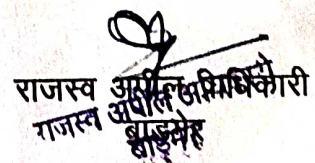 राजस्व अपील अधिकारी
राजस्व अपील अधिकारी
बाड़मेर
बाड़मेर